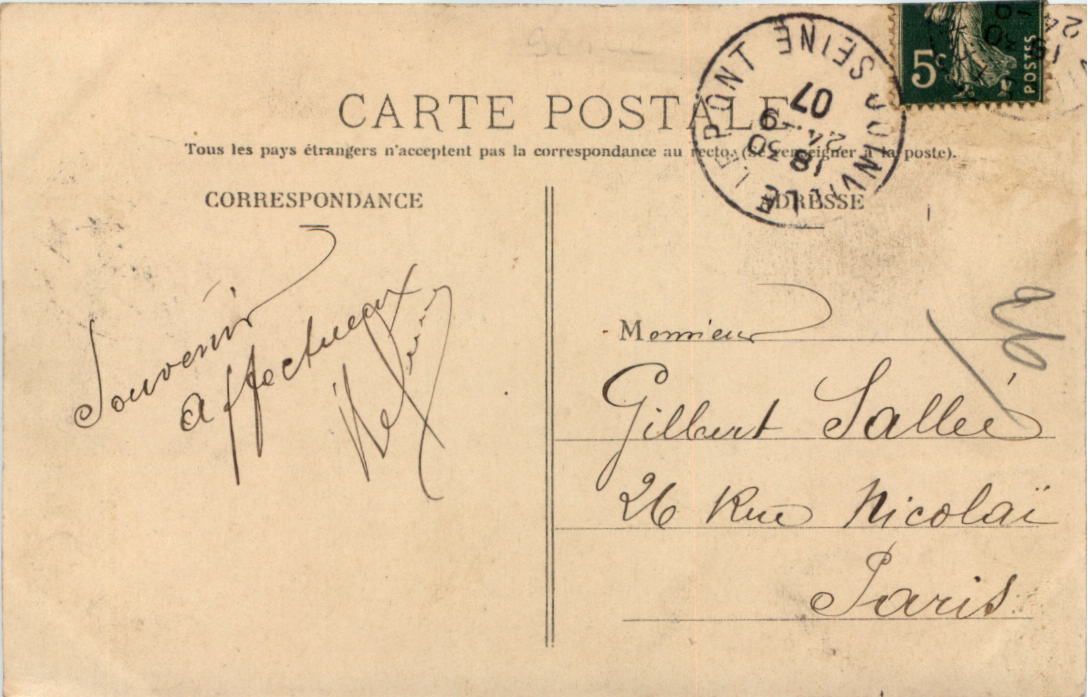 CARTE POSTALE
Tous les pays étrangers n'acceptent pas la correspondance au recto. (Se renseigner à la poste).
CORRESPONDANCE
Souvenir
affectueux
ADRESSE
Monsieur
Gilbert Sallé
26 Rue Nicolaï
Paris
26
JOINVILLE LE PONT SEINE
18 30
24 - 9
07
5c
POSTES